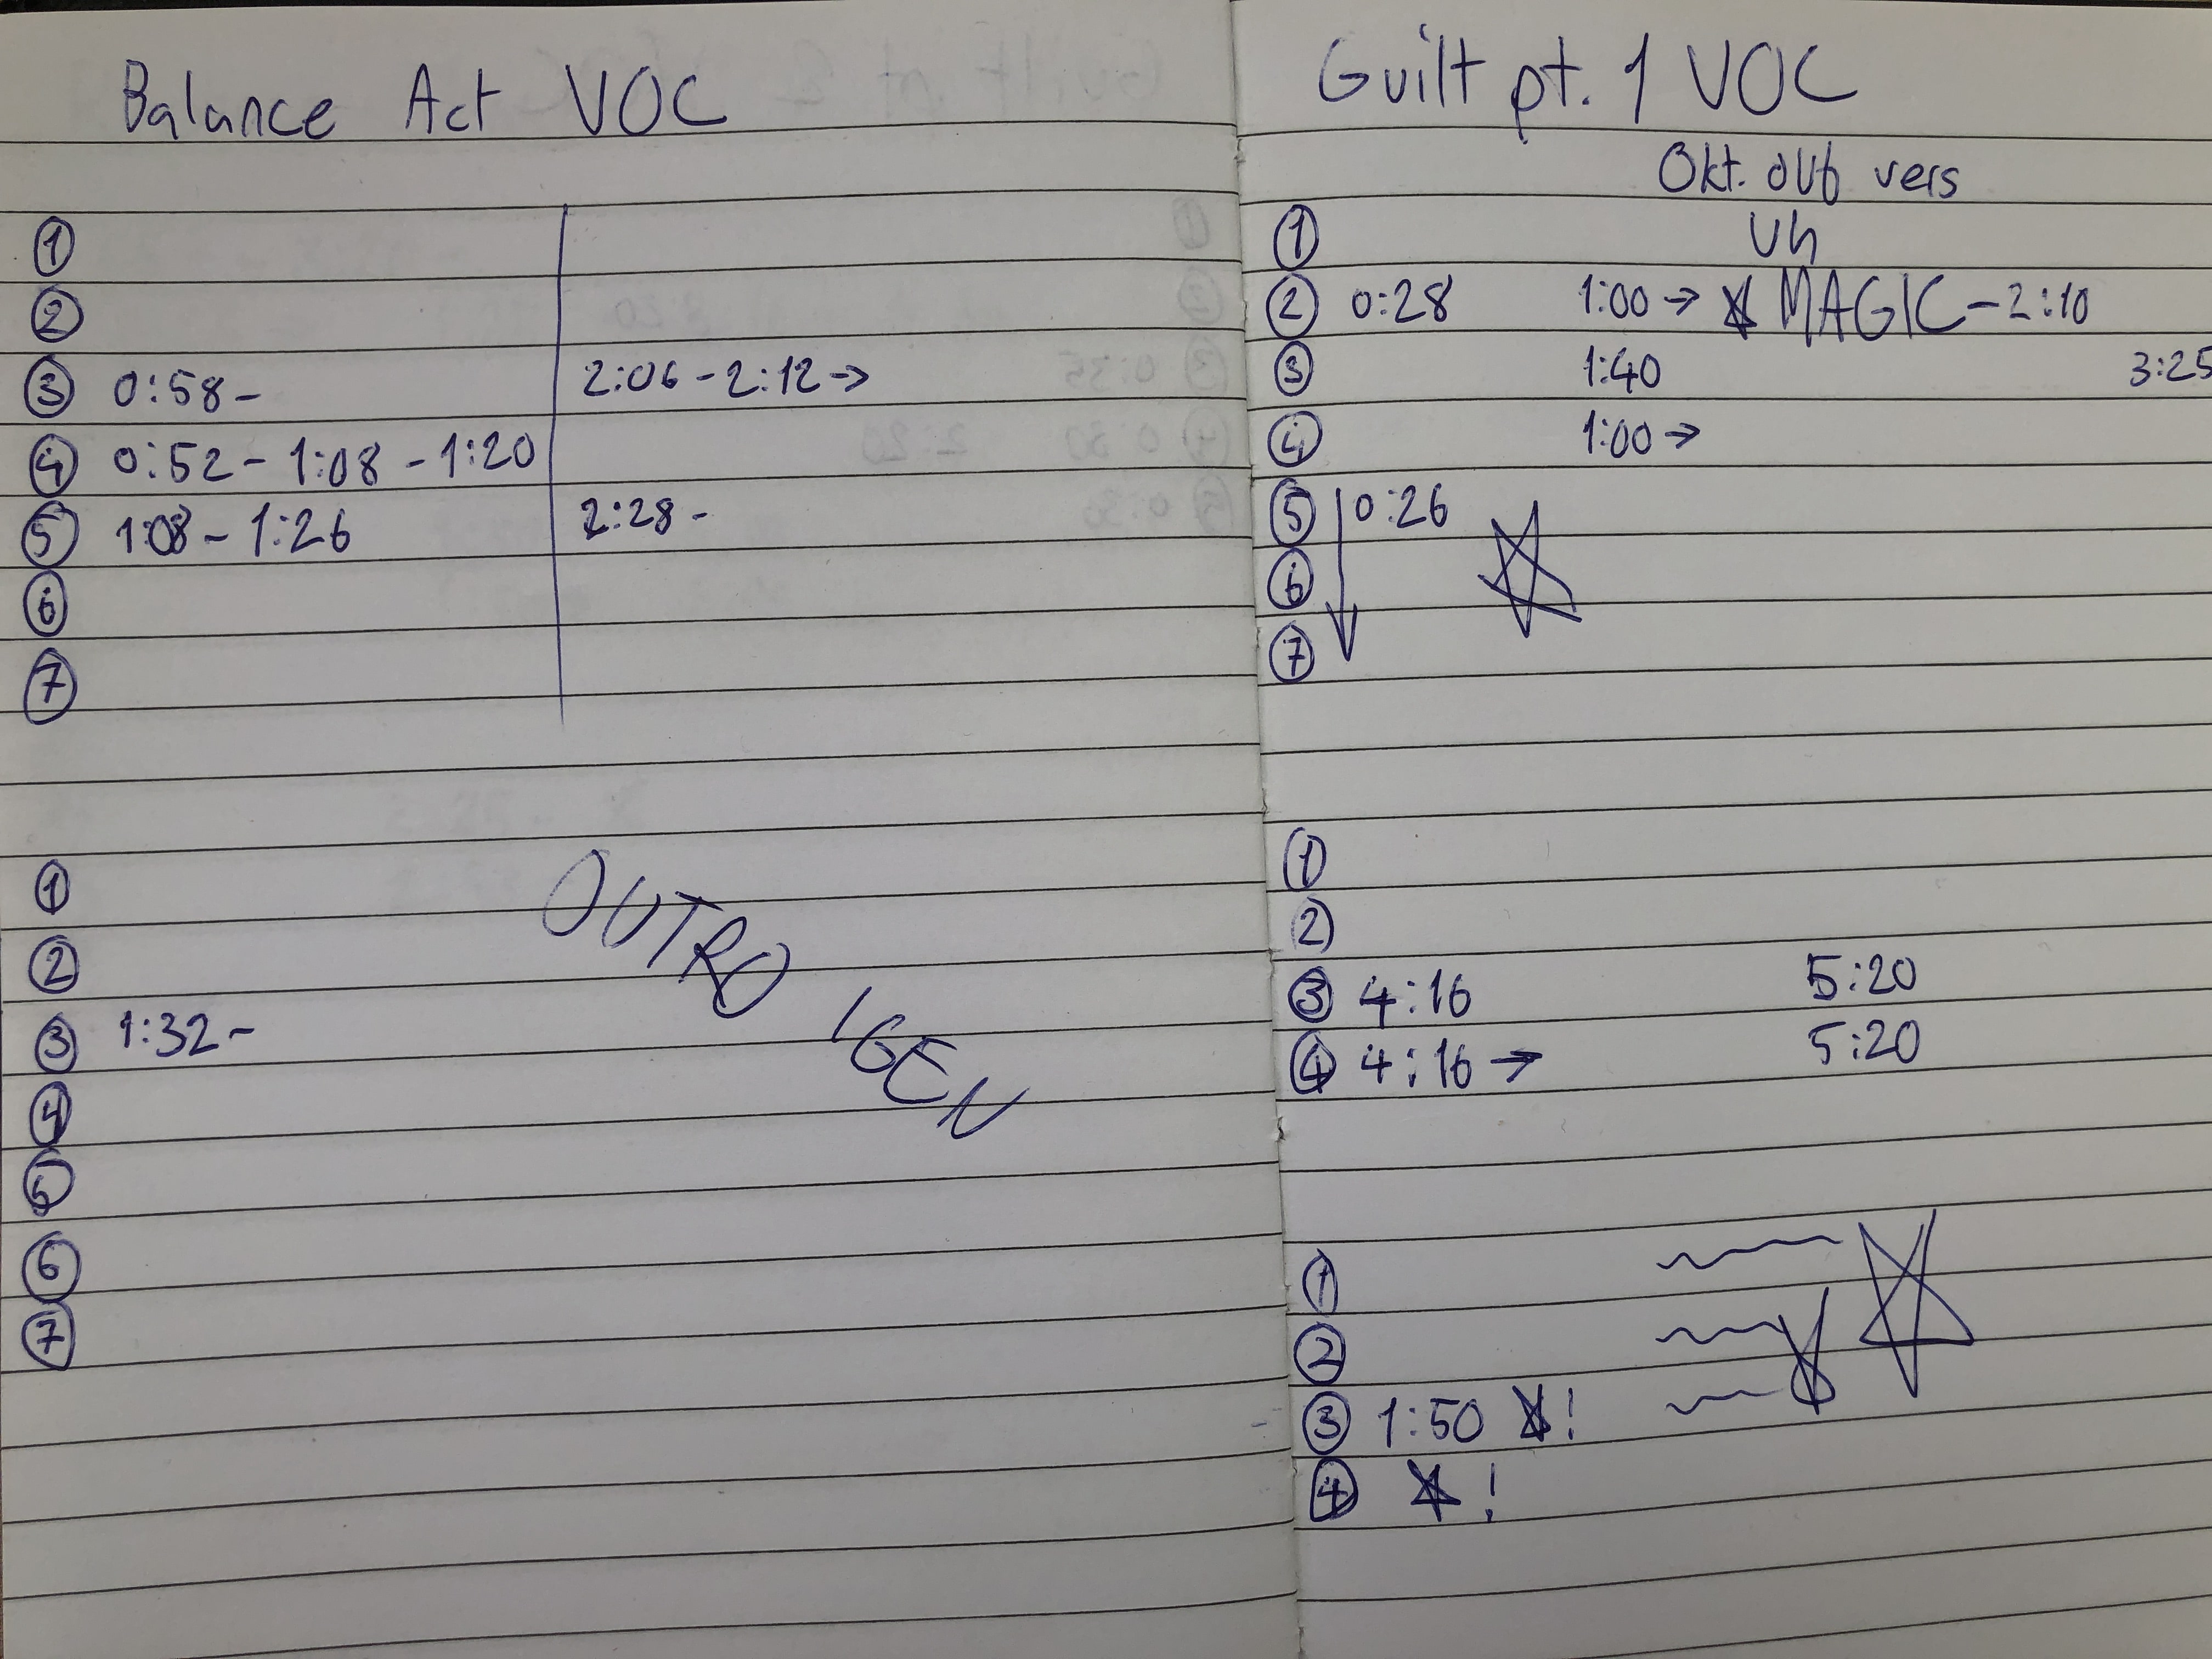 Balance Act VOC
1
2
3 0:58- 2:06-2:12→
4 0:52-1:08-1:20
5 1:08-1:26 2:28-
6
7
1
2
3 1:32-
4
5
6
7
OUTRO IGEN
Guilt pt. 1 VOC
Okt. dub vers
1 Uh
2 0:28 1:00→ ☆ MAGIC-2:10
3 1:40 3:25
4 1:00→
5 0:26 ☆
6
7
1
2
3 4:16 5:20
4 4:16→ 5:20
1
2
3 1:50 ☆!
4 ☆!